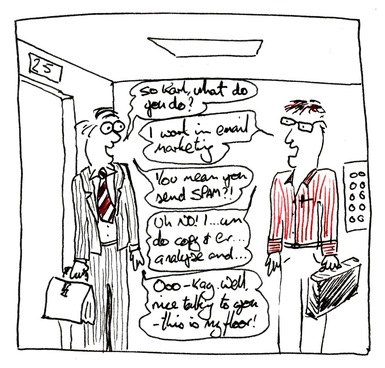 25
So Karl, what do
you do?
I work in email
marketing
You mean you
send SPAM?!
Uh NO! I...um
do copy & er...
analyse and...
Ooo-kay. Well,
nice talking to you
- this is my floor!